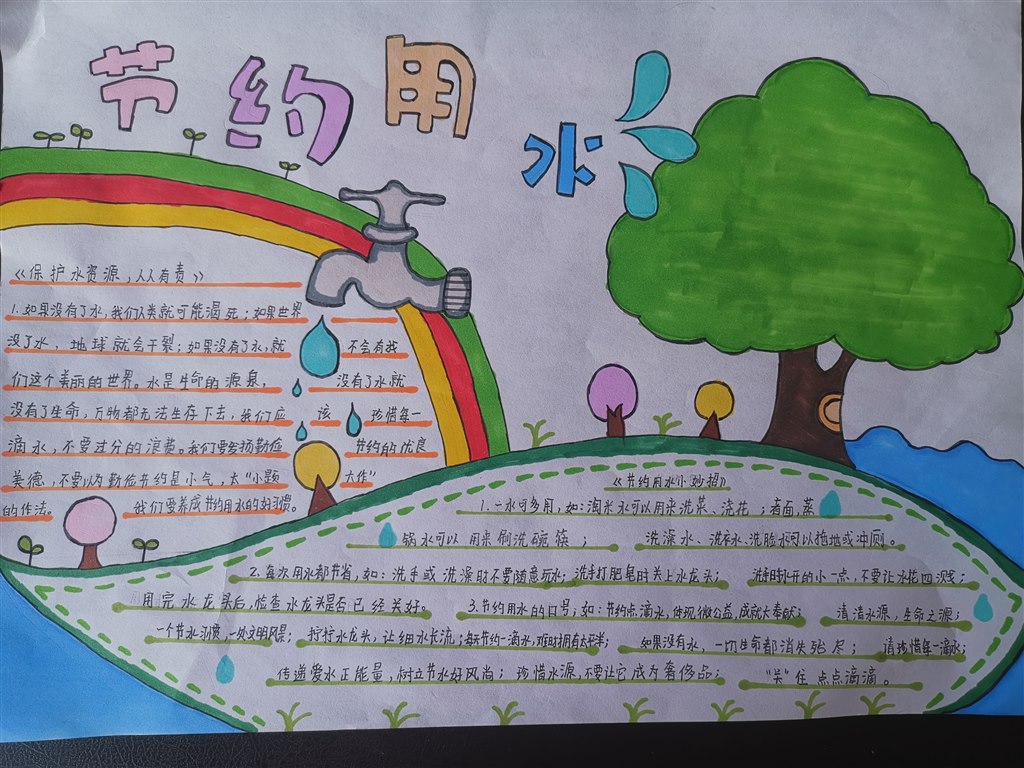 节约用水
《保护水资源，人人有责》
1.如果没有了水，我们人类就可能渴死；如果世界
没了水，地球就会干裂；如果没有了水，就 不会有我
们这个美丽的世界。水是生命的源泉， 没有了水就
没有了生命，万物都无法生存下去，我们应 该 珍惜每一
滴水，不要过分的浪费。我们要发扬勤俭 节约的优良
美德，不要以为勤俭节约是小气，太“小题 大作”
的作法。 我们要养成节约用水的好习惯。
《节约用水小妙招》
1.一水可多用，如：淘米水可以用来洗菜、浇花；煮面，蒸
锅水可以用来刷洗碗筷； 洗澡水、洗衣水、洗脸水可以拖地或冲厕。
2.每次用水都节省，如：洗手或洗澡时不要随意玩水；洗手打肥皂时关上水龙头； 洗手时水开的小一点，不要让水花四溅；
用完水龙头后，检查水龙头是否已经关好。 3.节约用水的口号；如：节约点滴水，体现微公益，成就大奉献； 清洁水源，生命之源；
一个节水习惯，一处文明风景； 拧拧水龙头，让细水长流；每天节约一滴水，难时拥有太平洋； 如果没有水，一切生命都消失殆尽； 请珍惜每一滴水；
传递爱水正能量，树立节水好风尚； 珍惜水源，不要让它成为奢侈品； “关”住点点滴滴。